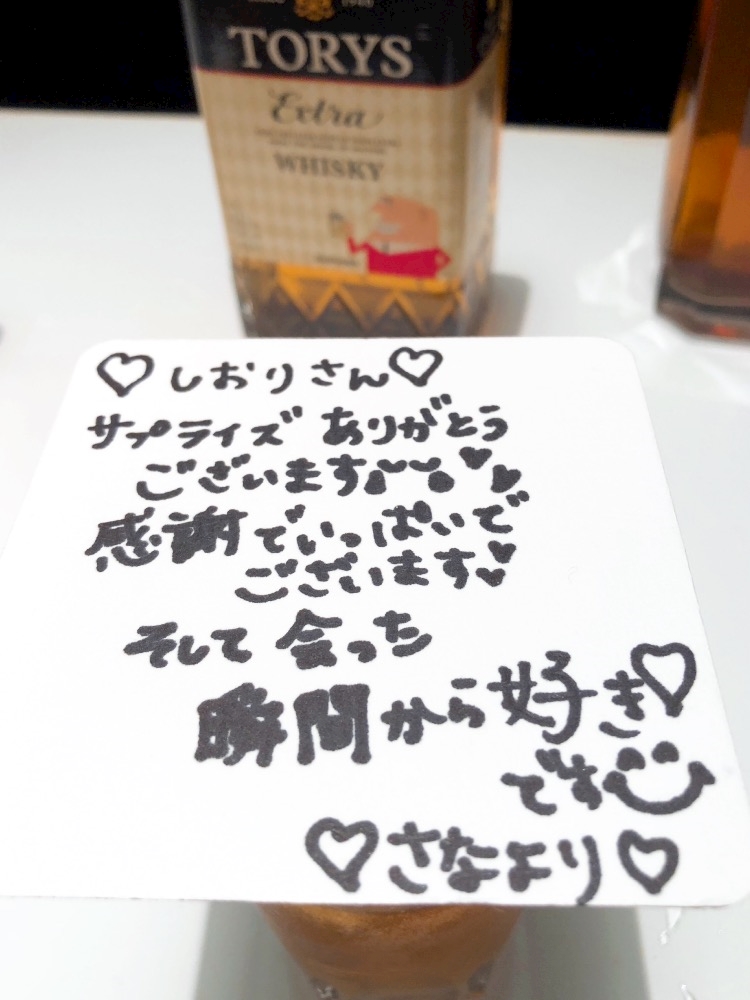 TORYS
Extra
WHISKY
♡しおりさん♡
サプライズ ありがとう
ございます♥♥
感謝でいっぱいで
ございます♥
そして 会った
瞬間から好き♡
です
♡さなより♡